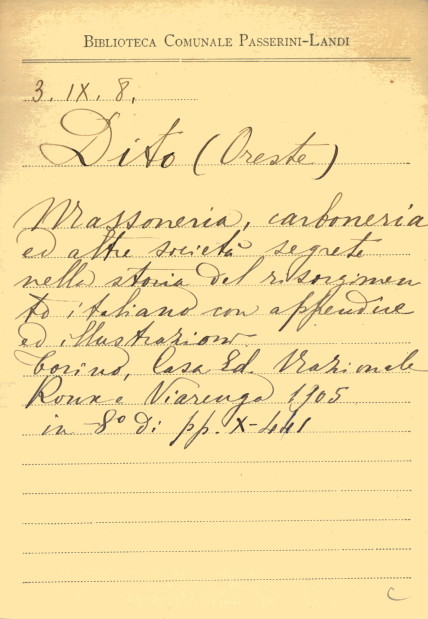 BIBLIOTECA COMUNALE PASSERINI-LANDI
3. IX. 8.
Dito (Oreste)
Massoneria, carboneria
ed altre società segrete
nella storia del risorgimen
to italiano con appendice
ed illustrazioni.
Torino, Casa Ed. Nazionale
Roux e Viarengo 1905
in 8º di pp. X-441
C